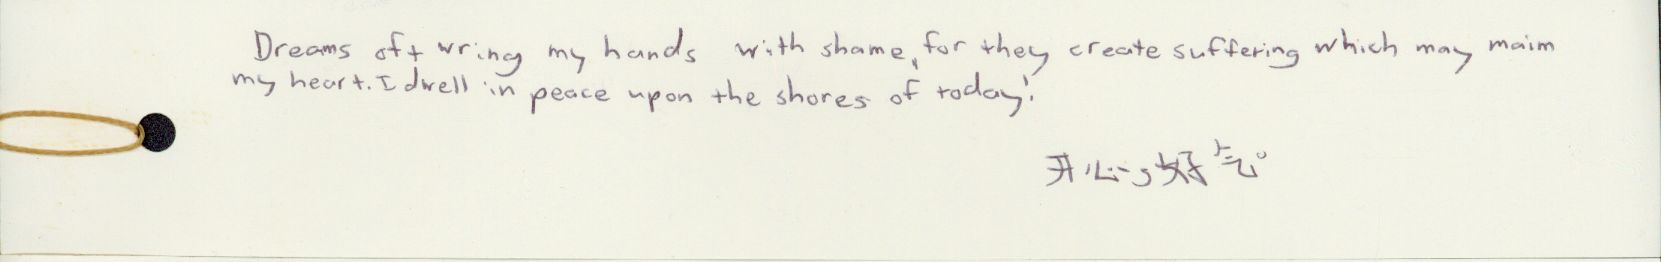 Dreams oft wring my hands with shame, for they create suffering which may maim
my heart. I dwell in peace upon the shores of today!
开心，好气。